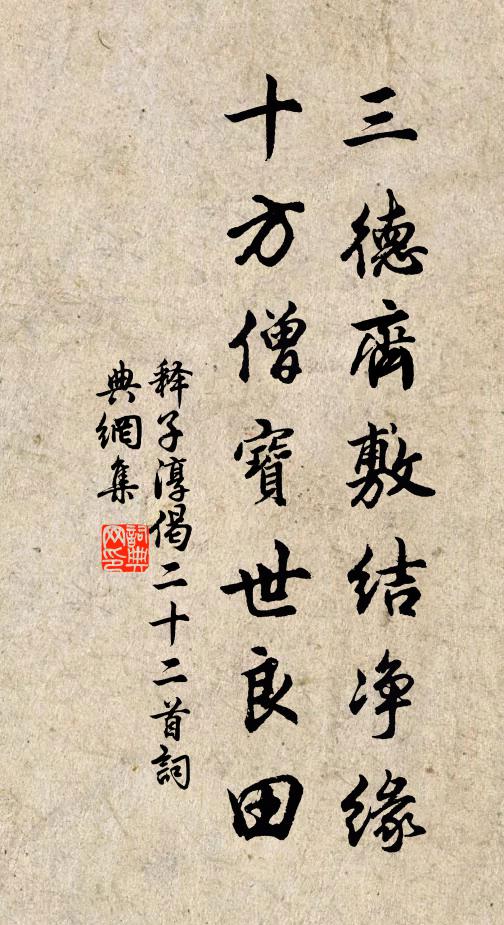 三德齊敷結净緣
十方僧寶世良田
釋子淳偈二十二首詞
典網集
詞典网印